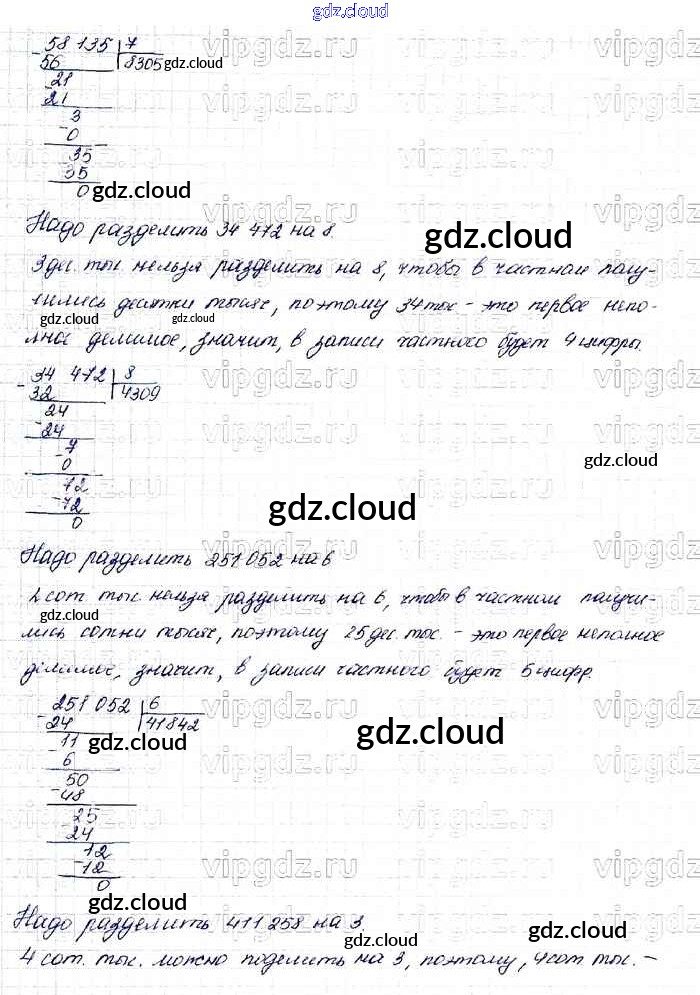 gdz.cloud
58 135 | 7
56 8305 gdz.cloud
21
21
3
0
35
35
0 gdz.cloud
Надо разделить 34 472 на 8.
gdz.cloud
3 дес. тыс нельзя разделить на 8, чтобы в частном полу-
чились десятки тысяч, поэтому 34 тыс - это первое непо-
gdz.cloud gdz.cloud
лное делимое, значит, в записи частного будет 4 цифры.
34 472 | 8
32 4309
24
24
7
0
gdz.cloud
72
72
0
gdz.cloud
Надо разделить 251 052 на 6
2 сот тыс. нельзя разделить на 6, чтобы в частном получи-
gdz.cloud
лись сотни тысяч, поэтому 25 дес. тыс. - это первое неполное
делимое, значит, в записи частного будет 5 цифр.
251 052 | 6
24 41842
11 gdz.cloud gdz.cloud
6
50
48
25
24
12
12
0
gdz.cloud
Надо разделить 411 258 на 3.
gdz.cloud
4 сот. тыс. можно поделить на 3, поэтому, 4 сот тыс. -
gdz.cloud
vipgdz.ru